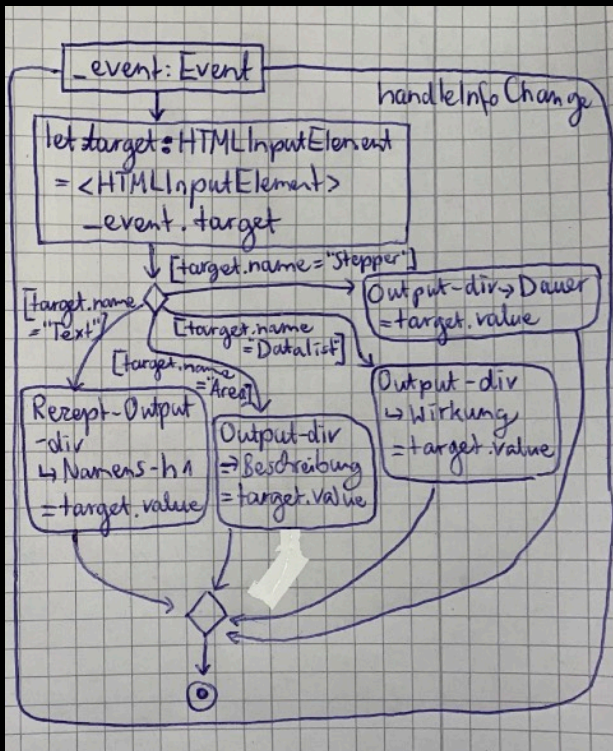 _event: Event
handleInfoChange
let target: HTMLInputElement
= <HTMLInputElement>
_event.target
[target.name="Stepper"]
[target.name
="Text"]
[target.name
=Datalist]
[target.name
="Area]
Output-div→Dauer
=target.value
Rezept-Output
-div
↳ Namens-h1
=target.value
Output-div
⇒Beschreibung
=target.value
Output-div
↳ Wirkung
=target.value